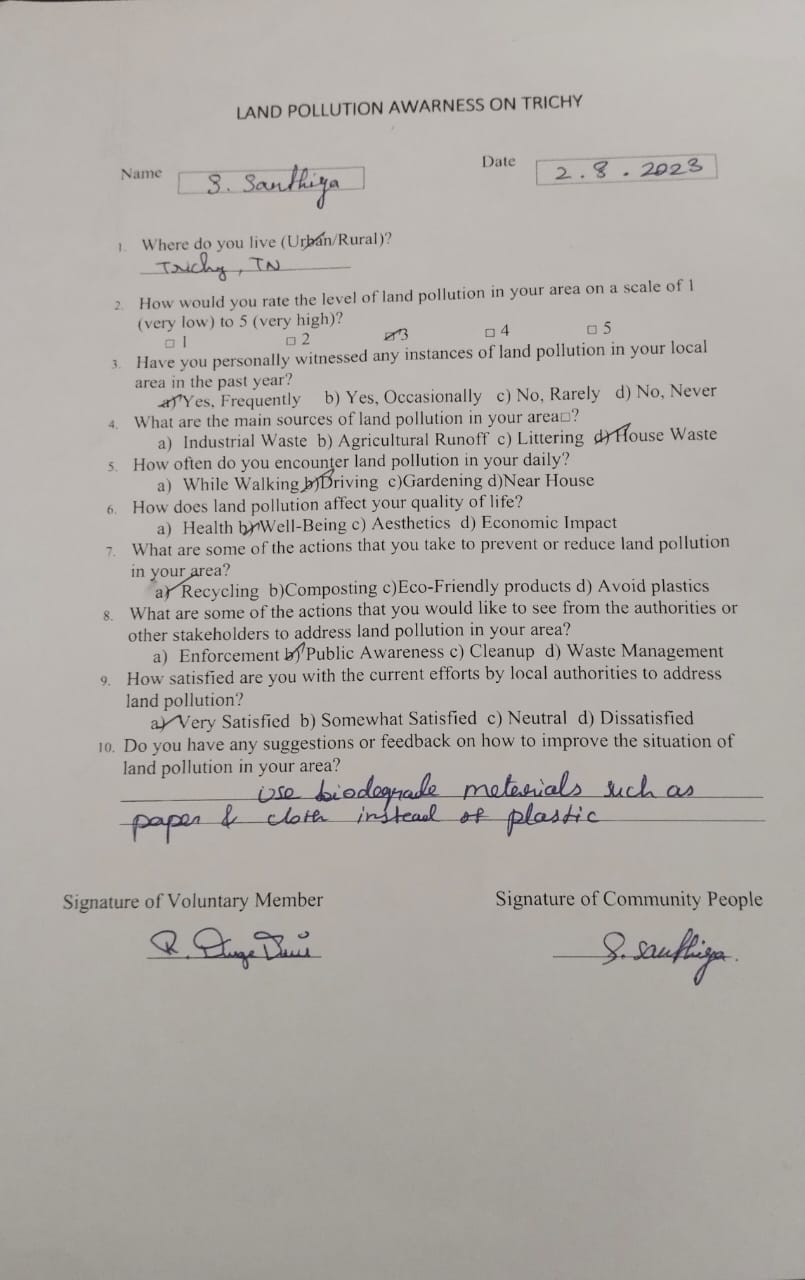 LAND POLLUTION AWARNESS ON TRICHY
Name S. Santhiya Date 2.8.2023
1. Where do you live (Urban/Rural)?
Trichy, TN
2. How would you rate the level of land pollution in your area on a scale of 1
(very low) to 5 (very high)?
□ 1 □ 2 ☑ 3 □ 4 □ 5
3. Have you personally witnessed any instances of land pollution in your local
area in the past year?
a) Yes, Frequently b) Yes, Occasionally c) No, Rarely d) No, Never
4. What are the main sources of land pollution in your area□?
a) Industrial Waste b) Agricultural Runoff c) Littering d) House Waste
5. How often do you encounter land pollution in your daily?
a) While Walking b)Driving c)Gardening d)Near House
6. How does land pollution affect your quality of life?
a) Health b) Well-Being c) Aesthetics d) Economic Impact
7. What are some of the actions that you take to prevent or reduce land pollution
in your area?
a) Recycling b)Composting c)Eco-Friendly products d) Avoid plastics
8. What are some of the actions that you would like to see from the authorities or
other stakeholders to address land pollution in your area?
a) Enforcement b) Public Awareness c) Cleanup d) Waste Management
9. How satisfied are you with the current efforts by local authorities to address
land pollution?
a) Very Satisfied b) Somewhat Satisfied c) Neutral d) Dissatisfied
10. Do you have any suggestions or feedback on how to improve the situation of
land pollution in your area?
use biodegrade meterials such as
paper & cloth instead of plastic
Signature of Voluntary Member Signature of Community People
R. S. Santhiya.